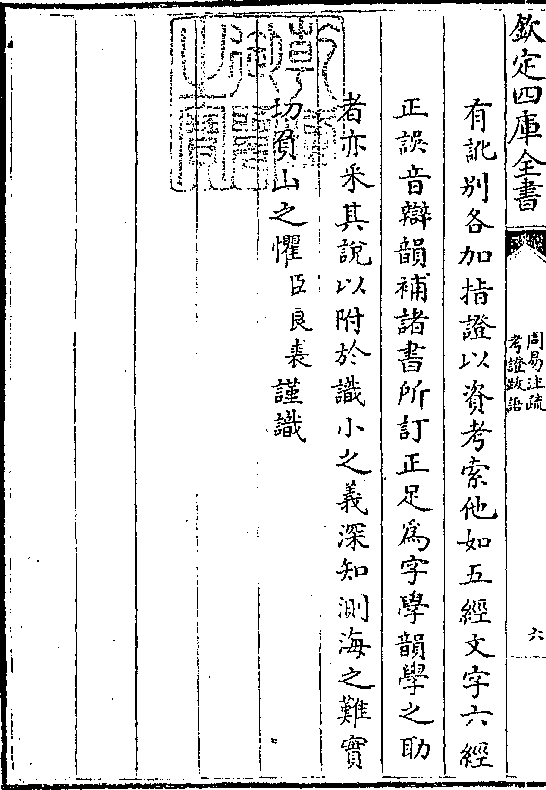 欽定四庫全書
周易注疏
考證跋語
六
有訛别各加指證以資考索他如五經文字六經
正誤音辯韻補諸書所訂正足爲字學韻學之助
者亦采其說以附於識小之義深知測海之難實
切負山之懼臣良裘謹識
乾隆御覽之寶